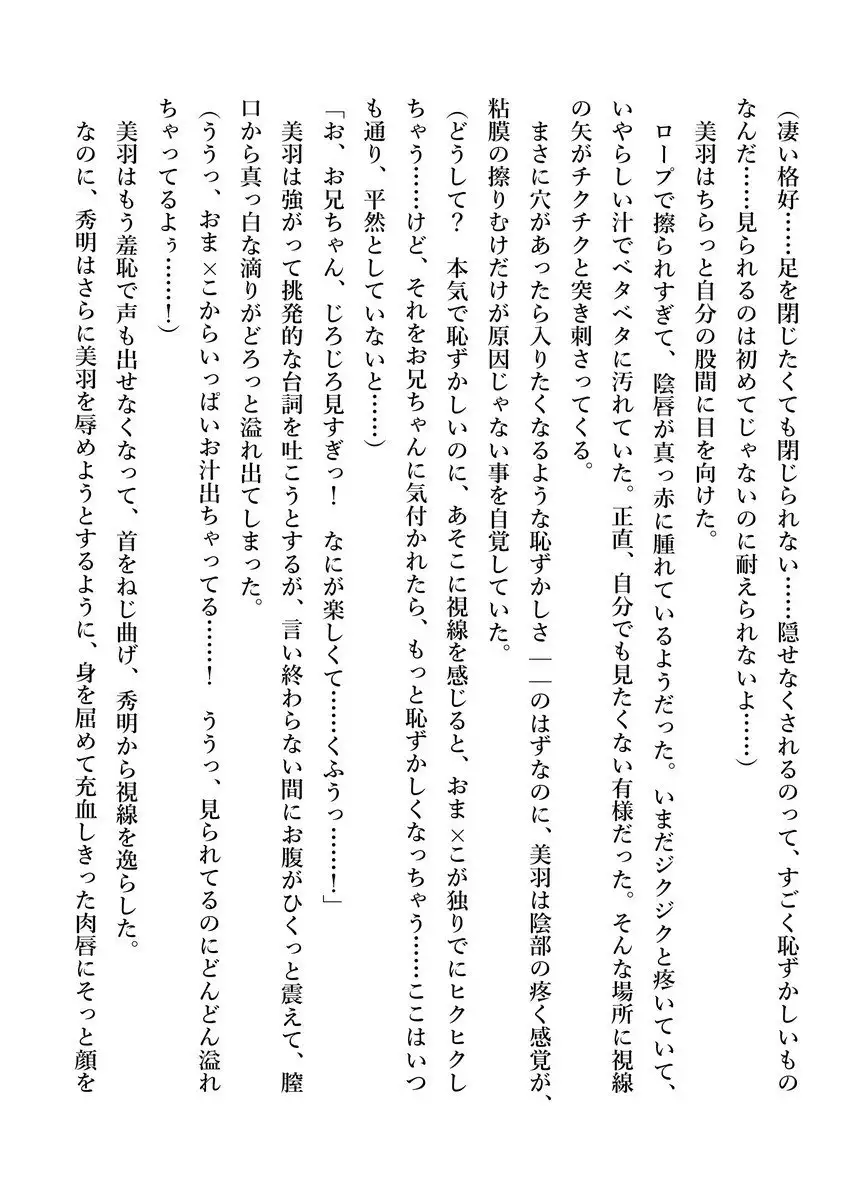 (凄い格好……足を閉じたくても閉じられない……隠せなくされるのって、すごく恥ずかしいもの
なんだ……見られるのは初めてじゃないのに耐えられないよ……)
美羽はちらっと自分の股間に目を向けた。
ロープで擦られすぎて、陰唇が真っ赤に腫れているようだった。いまだジクジクと疼いていて、
いやらしい汁でベタベタに汚れていた。正直、自分でも見たくない有様だった。そんな場所に視線
の矢がチクチクと突き刺さってくる。
まさに穴があったら入りたくなるような恥ずかしさ――のはずなのに、美羽は陰部の疼く感覚が、
粘膜の擦りむけだけが原因じゃない事を自覚していた。
(どうして？　本気で恥ずかしいのに、あそこに視線を感じると、おま×こが独りでにヒクヒクし
ちゃう……けど、それをお兄ちゃんに気付かれたら、もっと恥ずかしくなっちゃう……ここはいつ
も通り、平然としていないと……)
「お、お兄ちゃん、じろじろ見すぎっ！　なにが楽しくて……くふうっ……！」
美羽は強がって挑発的な台詞を吐こうとするが、言い終わらない間にお腹がひくっと震えて、膣
口から真っ白な滴りがどろっと溢れ出てしまった。
(ううっ、おま×こからいっぱいお汁出ちゃってる……！　ううっ、見られてるのにどんどん溢れ
ちゃってるよぅ……！)
美羽はもう羞恥で声も出せなくなって、首をねじ曲げ、秀明から視線を逸らした。
なのに、秀明はさらに美羽を辱めようとするように、身を屈めて充血しきった肉唇にそっと顔を